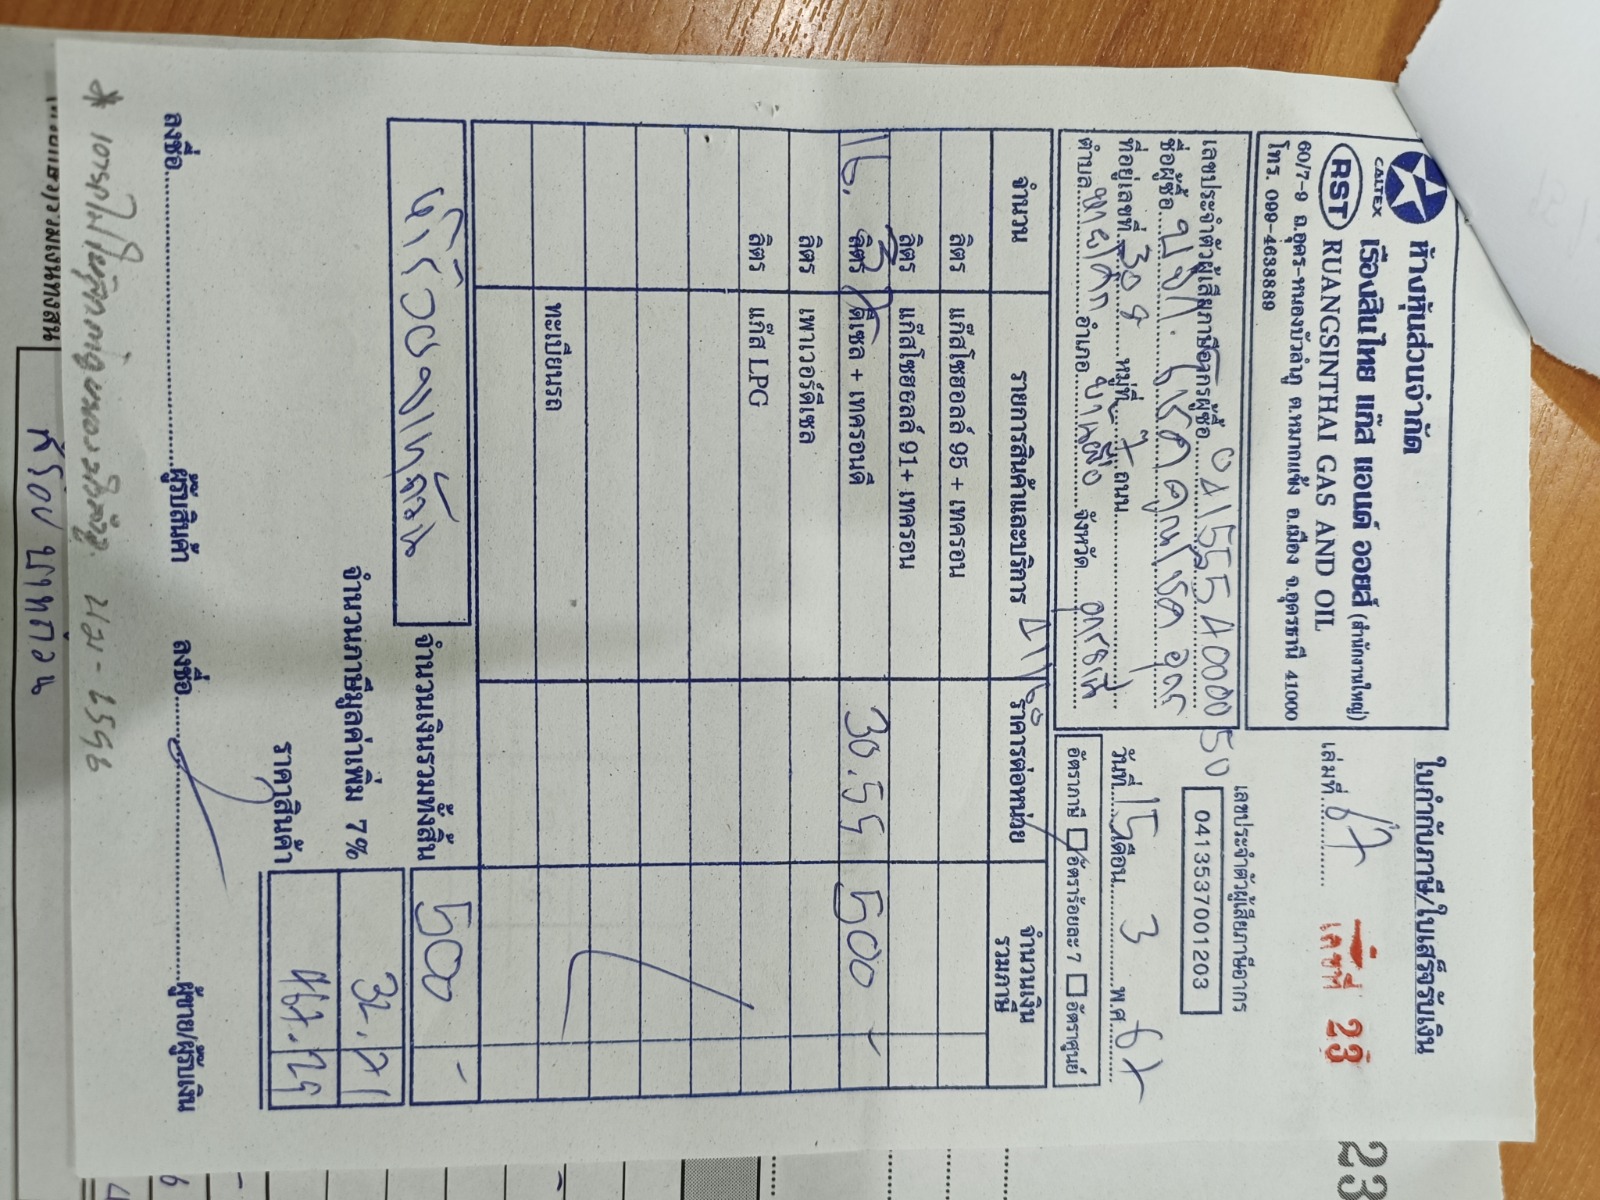 ห้างหุ้นส่วนจำกัด
CALTEX
เรืองสินไทย แก๊ส แอนด์ ออยส์ (สำนักงานใหญ่)
RST RUANGSINTHAI GAS AND OIL
60/7-9 ถ.อุดร-หนองบัวลำภู ต.หมากแข้ง อ.เมือง จ.อุดรธานี 41000
โทร. 099-4638889
ใบกำกับภาษี/ใบเสร็จรับเงิน
เล่มที่ 67 เลขที่ 23
เลขประจำตัวผู้เสียภาษีอากร
0413537001203
เลขประจำตัวผู้เสียภาษีอากรผู้ซื้อ 0415554000050
ชื่อผู้ซื้อ บจก. อุดร
ที่อยู่เลขที่ 308 หมู่ที่ 7 ถนน
ตำบล อำเภอ บ้านผือ จังหวัด อุดรธานี 41160
วันที่ 15 เดือน 3 พ.ศ. 67
อัตราภาษี อัตราร้อยละ 7 อัตราศูนย์
จำนวน รายการสินค้าและบริการ ราคาต่อหน่วย จำนวนเงินรวมภาษี
ลิตร แก๊สโซฮอลล์ 95 + เทครอน
ลิตร แก๊สโซฮอลล์ 91+ เทครอน
16. ลิตร ดีเซล + เทครอนดี 30.55 500 -
ลิตร เพาเวอร์ดีเซล
ลิตร แก๊ส LPG
ทะเบียนรถ
ห้าร้อยบาทถ้วน จำนวนเงินรวมทั้งสิ้น 500 -
จำนวนภาษีมูลค่าเพิ่ม 7% 32.71
ราคาสินค้า 467.29
ลงชื่อ ผู้รับสินค้า ลงชื่อ ผู้ขาย/ผู้รับเงิน
ห้าร้อยบาทถ้วน
23